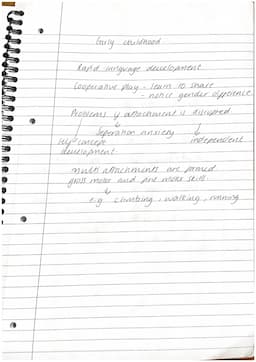 Early childhood
Rapid language development
Cooperative play - learn to share
- notice gender difference
Problems if attachment is disrupted
Seperation anxiety
self-concept independent
development
multi attachments are formed
gross motor and fine motor skills.
e.g climbing, walking, running